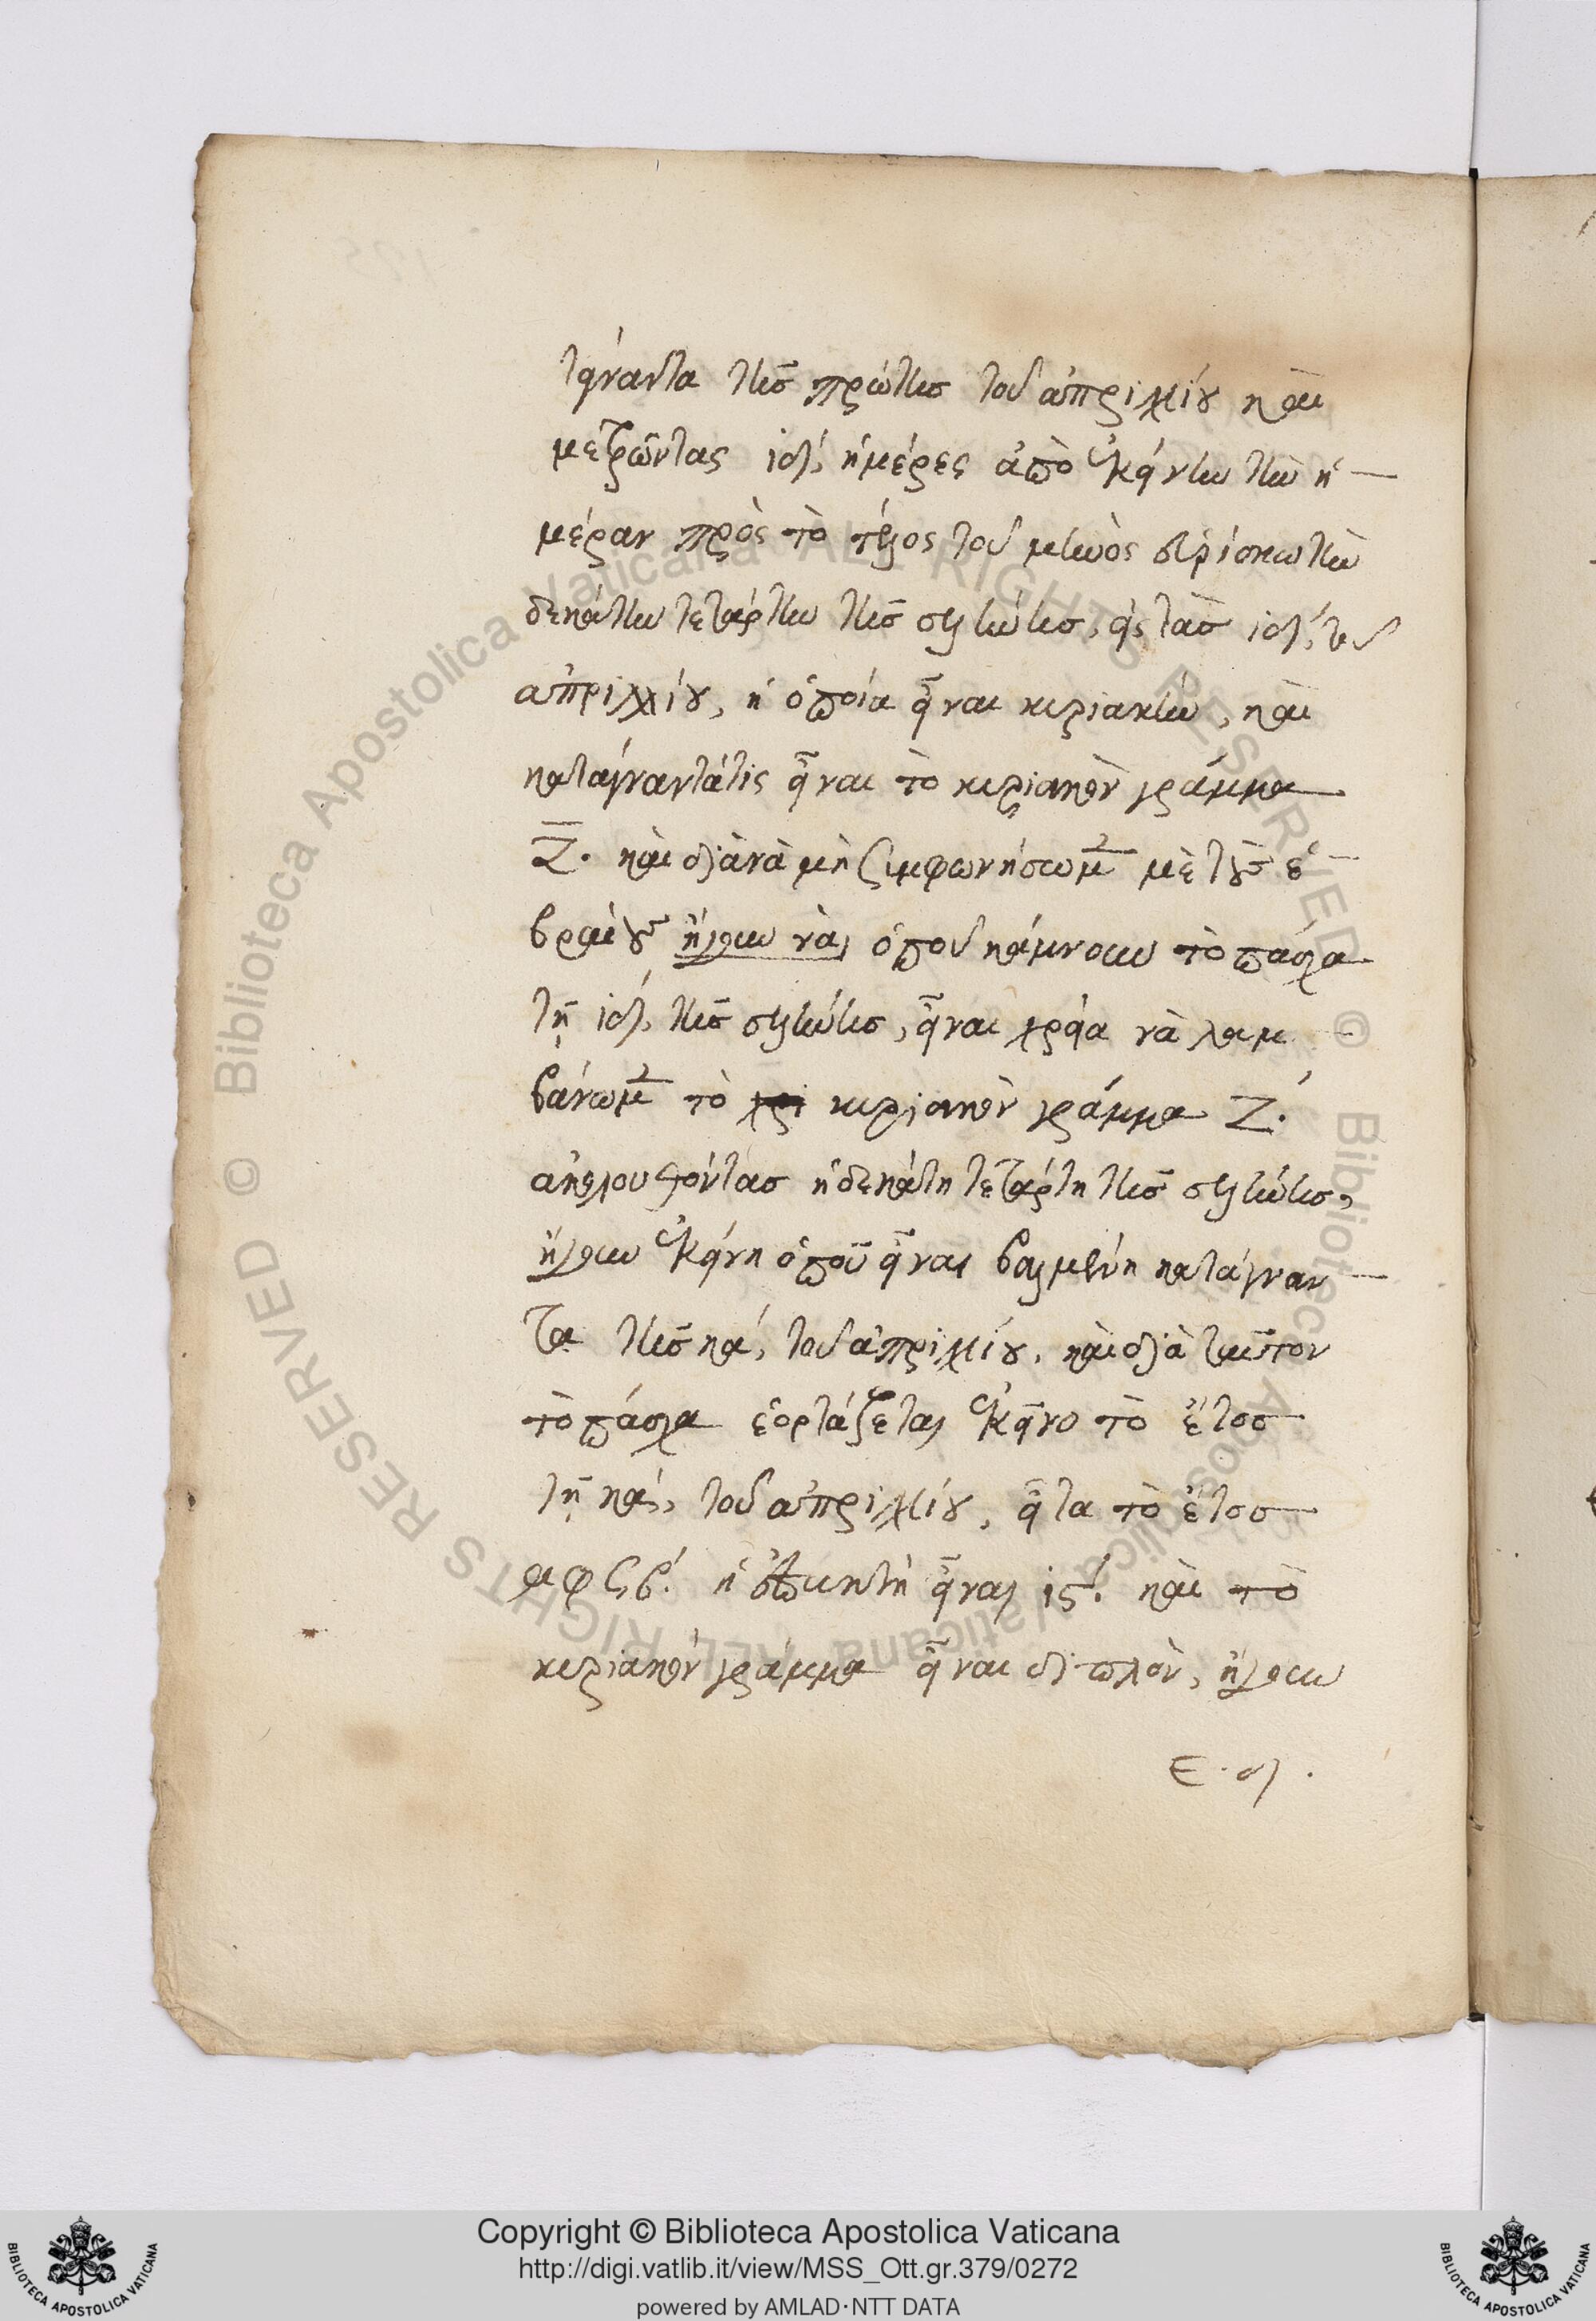 τάγναντα τῆς πρώτης τοῦ ἀπριλλίου καὶ
μετρῶντας ιδ´, ἡμέρες ἀπὸ ἐκείνην τὴν ἡ—
μέραν πρὸς τὸ τέλος τοῦ μηνὸς εὑρίσκω τὴν
δεκάτην τετάρτην τῆς σελήνης, εἰς τὰς ιδ´, τοῦ
ἀπριλλίου, ἡ ὁποία εἶναι κυριακὴ, καὶ
κατάγναντάτις εἶναι τὸ κυριακὸν γράμμα
Ζ. καὶ διὰ νὰ μὴ ζυμφωνήσωμεν μὲ τοὺς ἑ—
βραίους ἤγουν νὰ, ὁποῦ κάμνουν τὸ πάσχα
τῇ ιδ´, τῆς σελήνης, εἶναι χρεία νὰ λαμ
βάνωμεν τὸ κυριακὸν γράμμα Ζ.
ἀκολουθόντας ἡ δεκάτη τετάρτη τῆς σελήνης,
ἤγουν ἐκείνη ὁποῦ εἶναι βαλμένη κατάγναν—
τα τῆς κα´, τοῦ ἀπριλλίου, καὶ διὰ ταῦτον
τὸ πάσχα ἑορτάζεται ἐκεῖνο τὸ ἔτος
τῇ κα´, τοῦ ἀπριλλίου, εἶτα τὸ ἔτος
αφϟβ´. ἡ ἐπακτὴ εἶναι ιϛ´. καὶ τὸ
κυριακὸν γράμμα εἶναι διπλὸν, ἤγουν
Ε. δ.
Copyright © Biblioteca Apostolica Vaticana
http://digi.vatlib.it/view/MSS_Ott.gr.379/0272
powered by AMLAD·NTT DATA